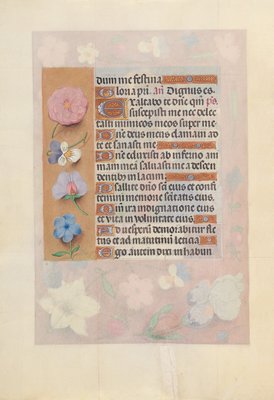 dum me festina.
Gloria pr̄i. añ Dignus es.
Exaltabo te dn̄e qm̄ ps.
suscepisti me nec delec
tasti inimicos meos super me.
Dn̄e deus meus clamaui ad
te et sanasti me.
Dn̄e eduxisti ab inferno am
mam mea saluasti me a descen
dentibus in lacum.
Psallite dn̄o sc̄i eius et confi
temini memorie sc̄itatis eius.
Qm̄ ira indignatione eius
et vita in voluntate eius.
Ad vesperū demorabitur fle
tus et ad matutinū leticia.
Ego autem dixi in habun